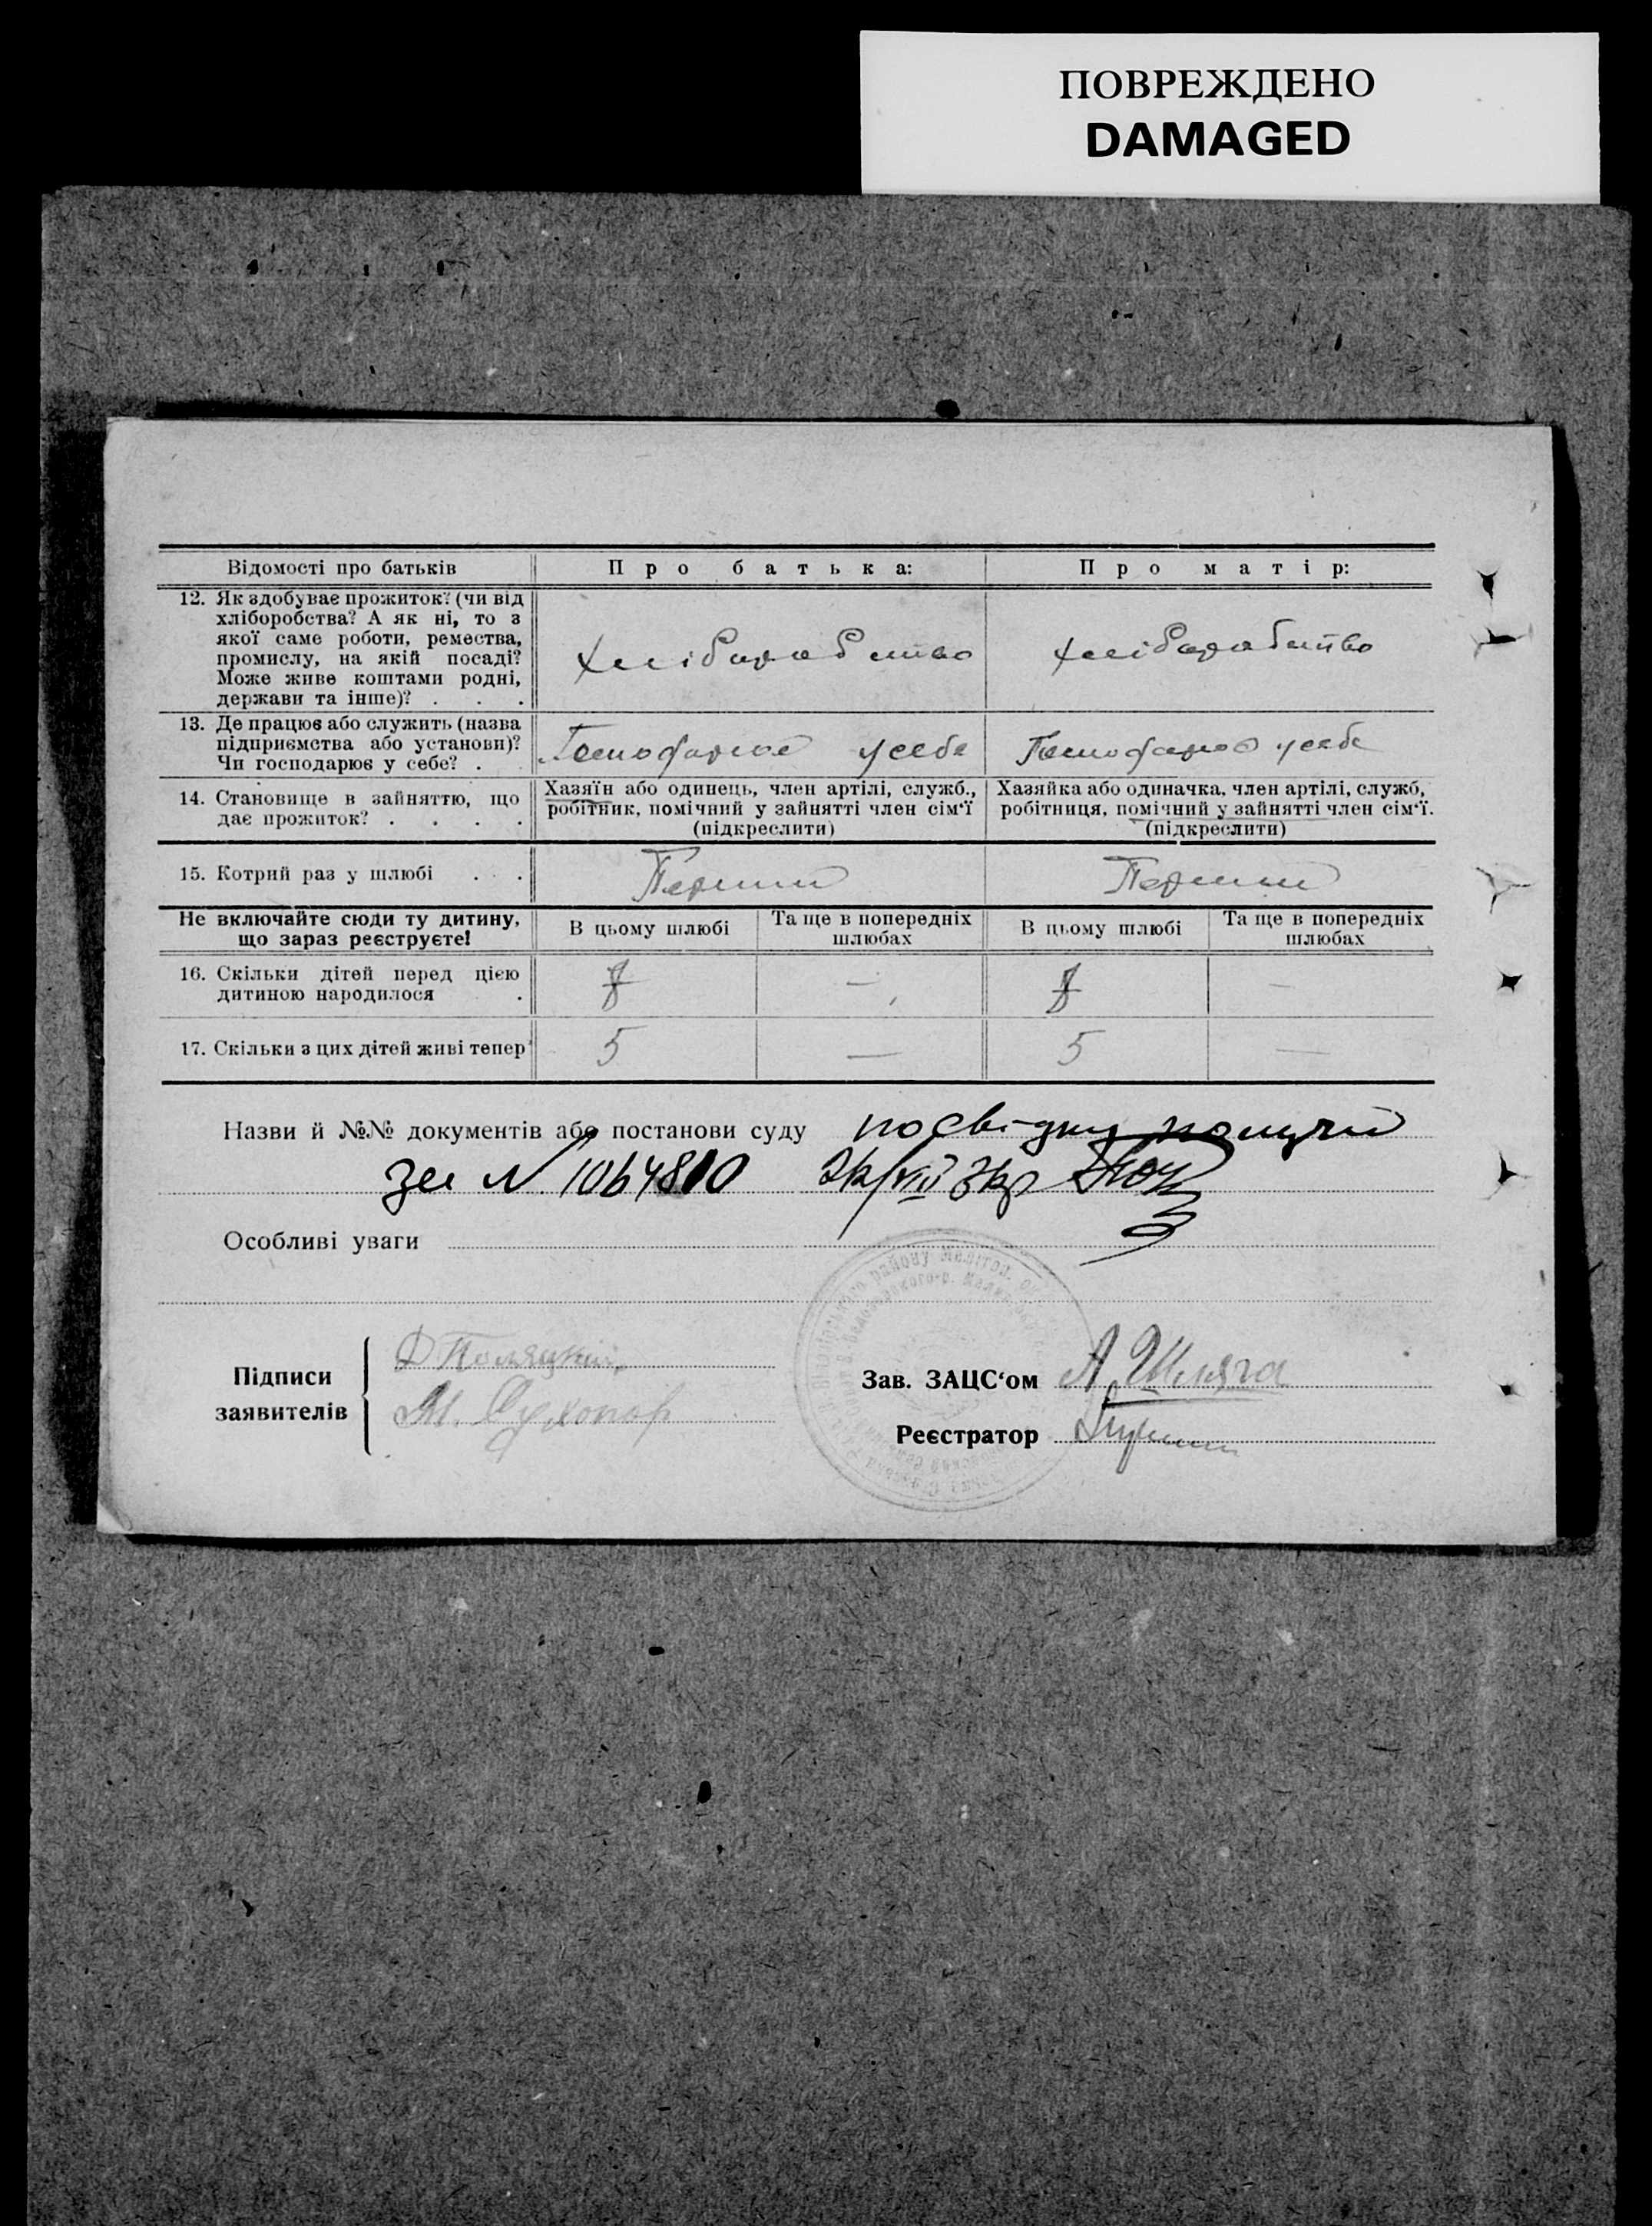 ПОВРЕЖДЕНО
DAMAGED
Відомості про батьків
Про батька:
Про матір:
12. Як здобуває прожиток? (чи від
хліборобства? А як ні, то з
якої саме роботи, ремества,
промислу, на якій посаді?
Може живе коштами родні,
держави та інше)? . . .
хлібаработво
хлібаработво
13. Де працює або служить (назва
підприємства або установи)?
Чи господарює у себе? .
Господарює у себе
Господарює у себе
14. Становище в зайняттю, що
дає прожиток? . . . .
Хазяїн або одинець, член артілі, служб.,
робітник, помічний у зайнятті член сім'ї
(підкреслити)
Хазяйка або одиначка, член артілі, служб,
робітниця, помічний у зайнятті член сім'ї.
(підкреслити)
15. Котрий раз у шлюбі . . .
Перший
Перший
Не включайте сюди ту дитину,
що зараз реєструєте!
В цьому шлюбі
Та ще в попередніх
шлюбах
В цьому шлюбі
Та ще в попередніх
шлюбах
16. Скільки дітей перед цією
дитиною народилося .
—
—
17. Скільки з цих дітей живі тепер
5
—
5
—
Назви й №№ документів або постанови суду посвідку
за № 1064810
Особливі уваги
Підписи
заявителів
М. Сухопар
Зав. ЗАЦС'ом А Шляга
Реєстратор